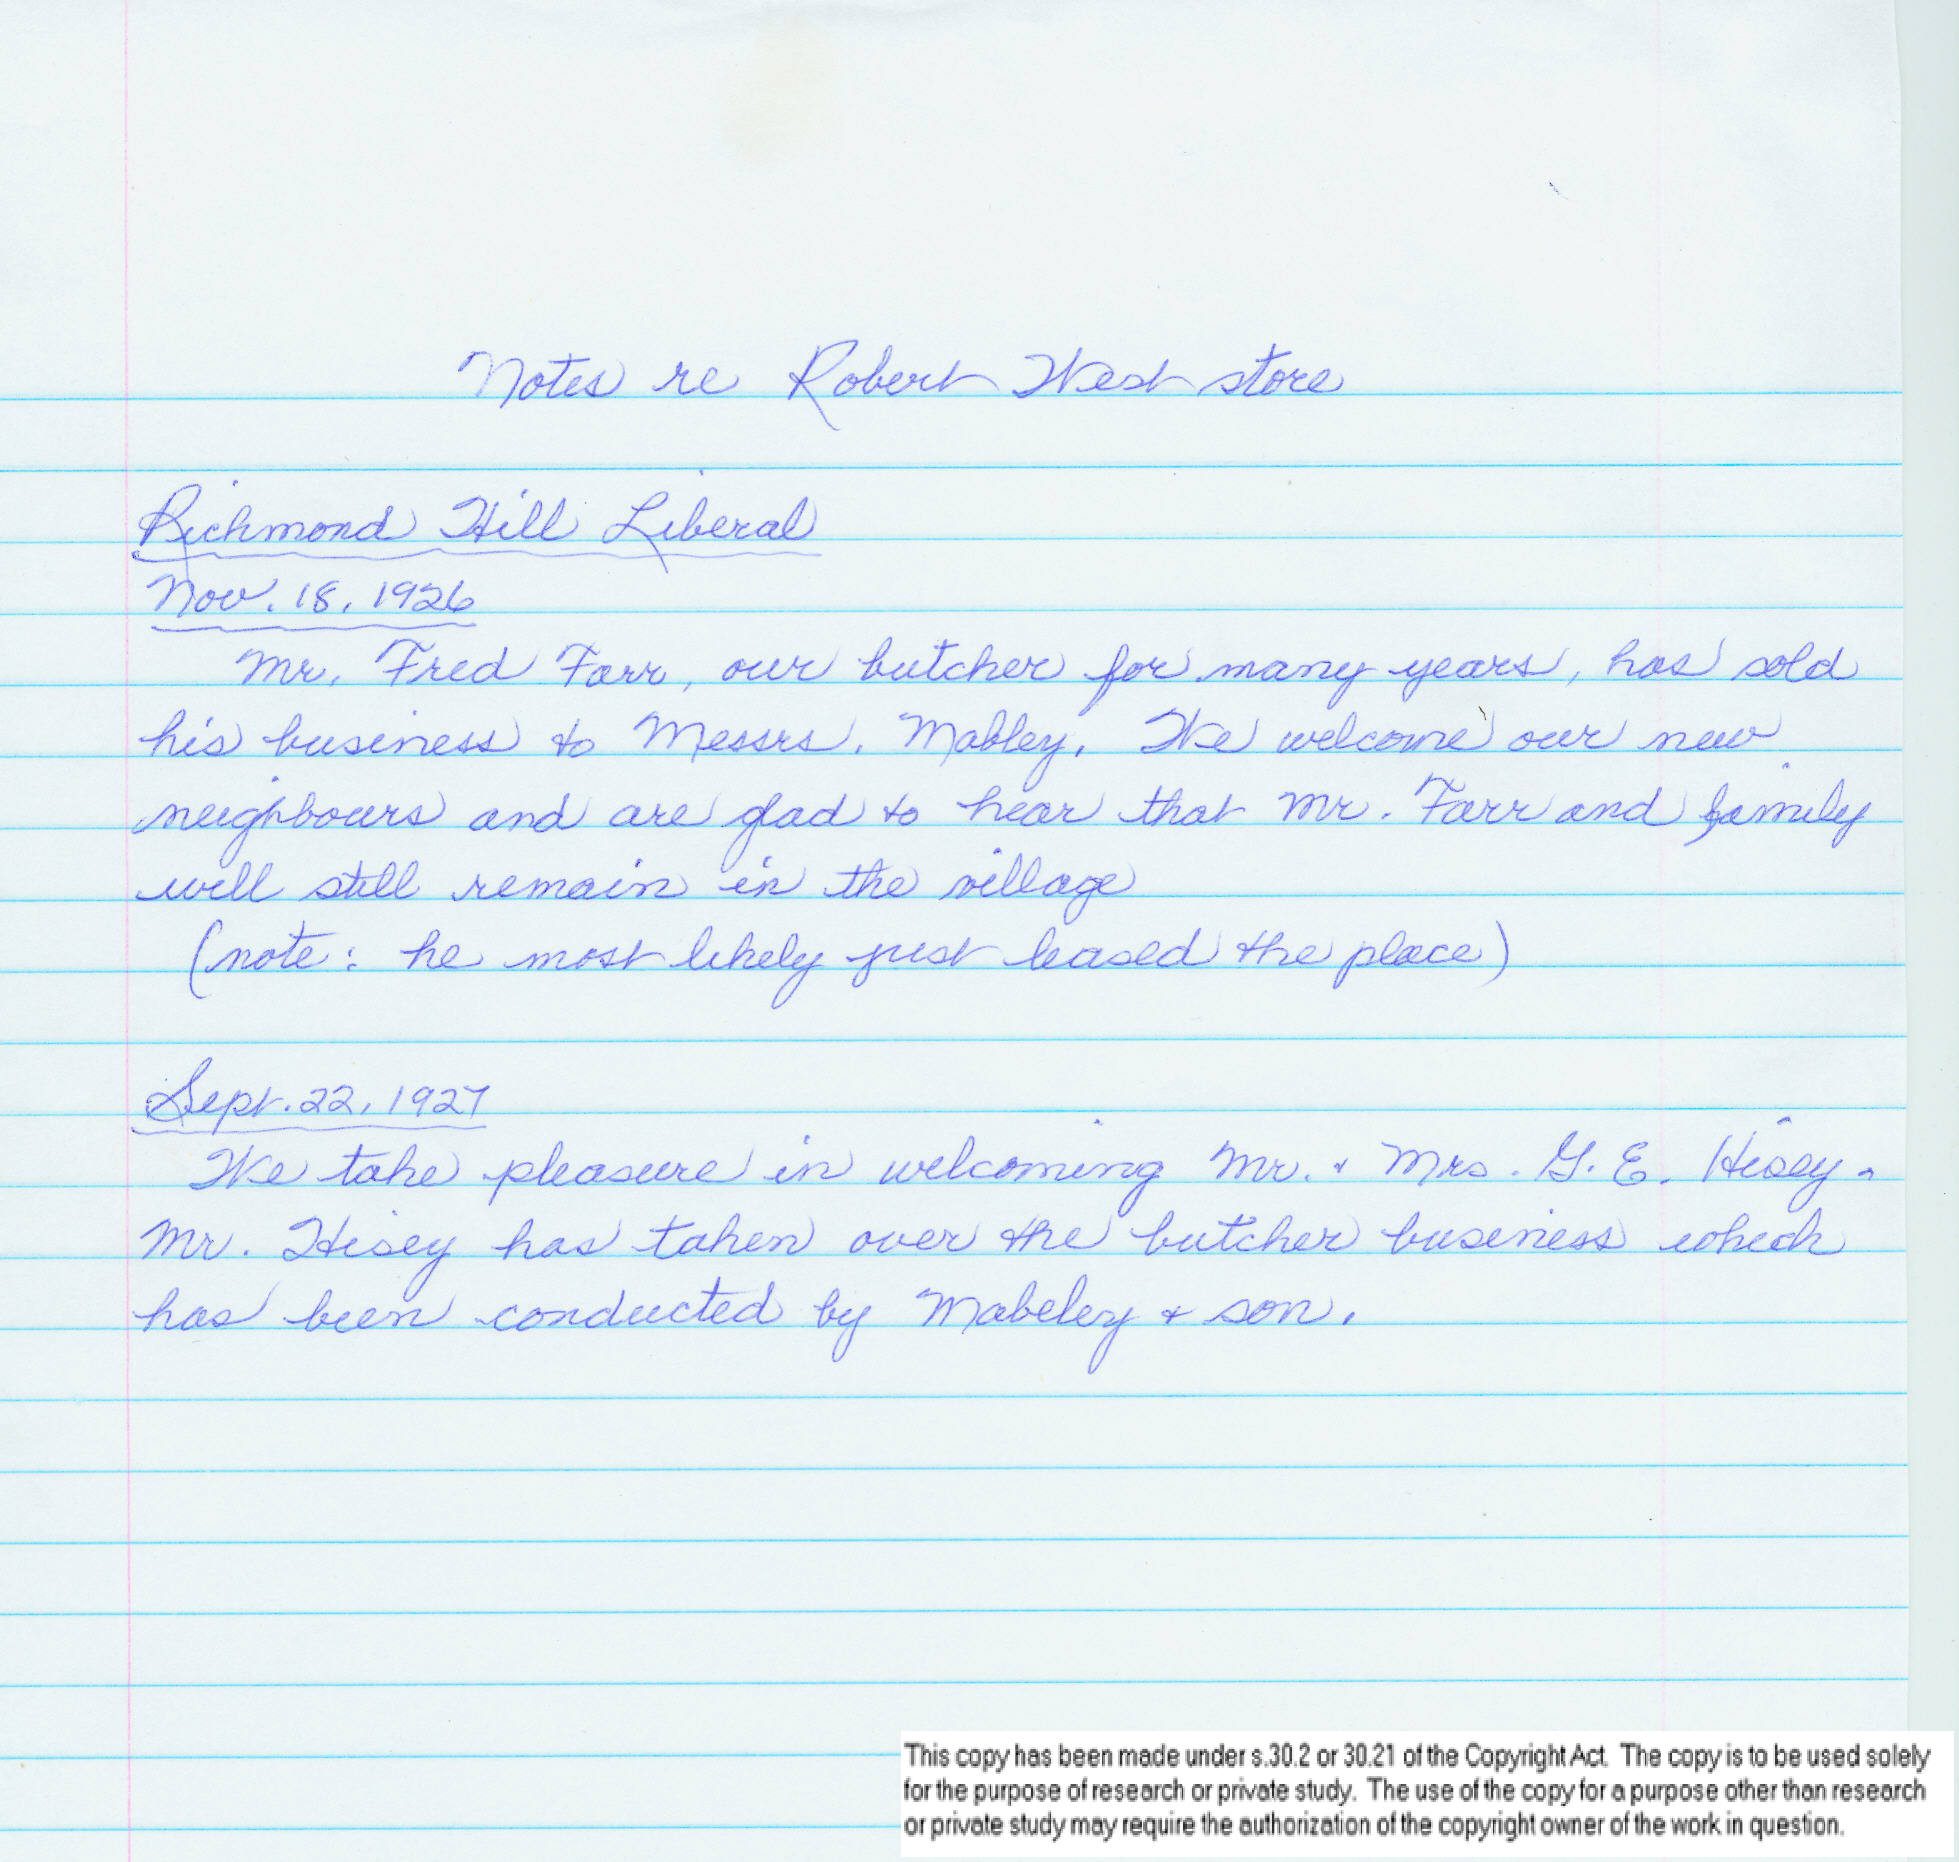 Notes re Robert West store
Richmond Hill Liberal
Nov. 18, 1926
Mr. Fred Farr, our butcher for many years, has sold
his business to Messrs. Mabley. We welcome our new
neighbours and are glad to hear that Mr. Farr and family
will still remain in the village
(note: he most likely just leased the place)
Sept. 22, 1927
We take pleasure in welcoming Mr. & Mrs. G. E. Hisey.
Mr. Hisey has taken over the butcher business which
has been conducted by Mabeley & son.
This copy has been made under s.30.2 or 30.21 of the Copyright Act. The copy is to be used solely
for the purpose of research or private study. The use of the copy for a purpose other than research
or private study may require the authorization of the copyright owner of the work in question.